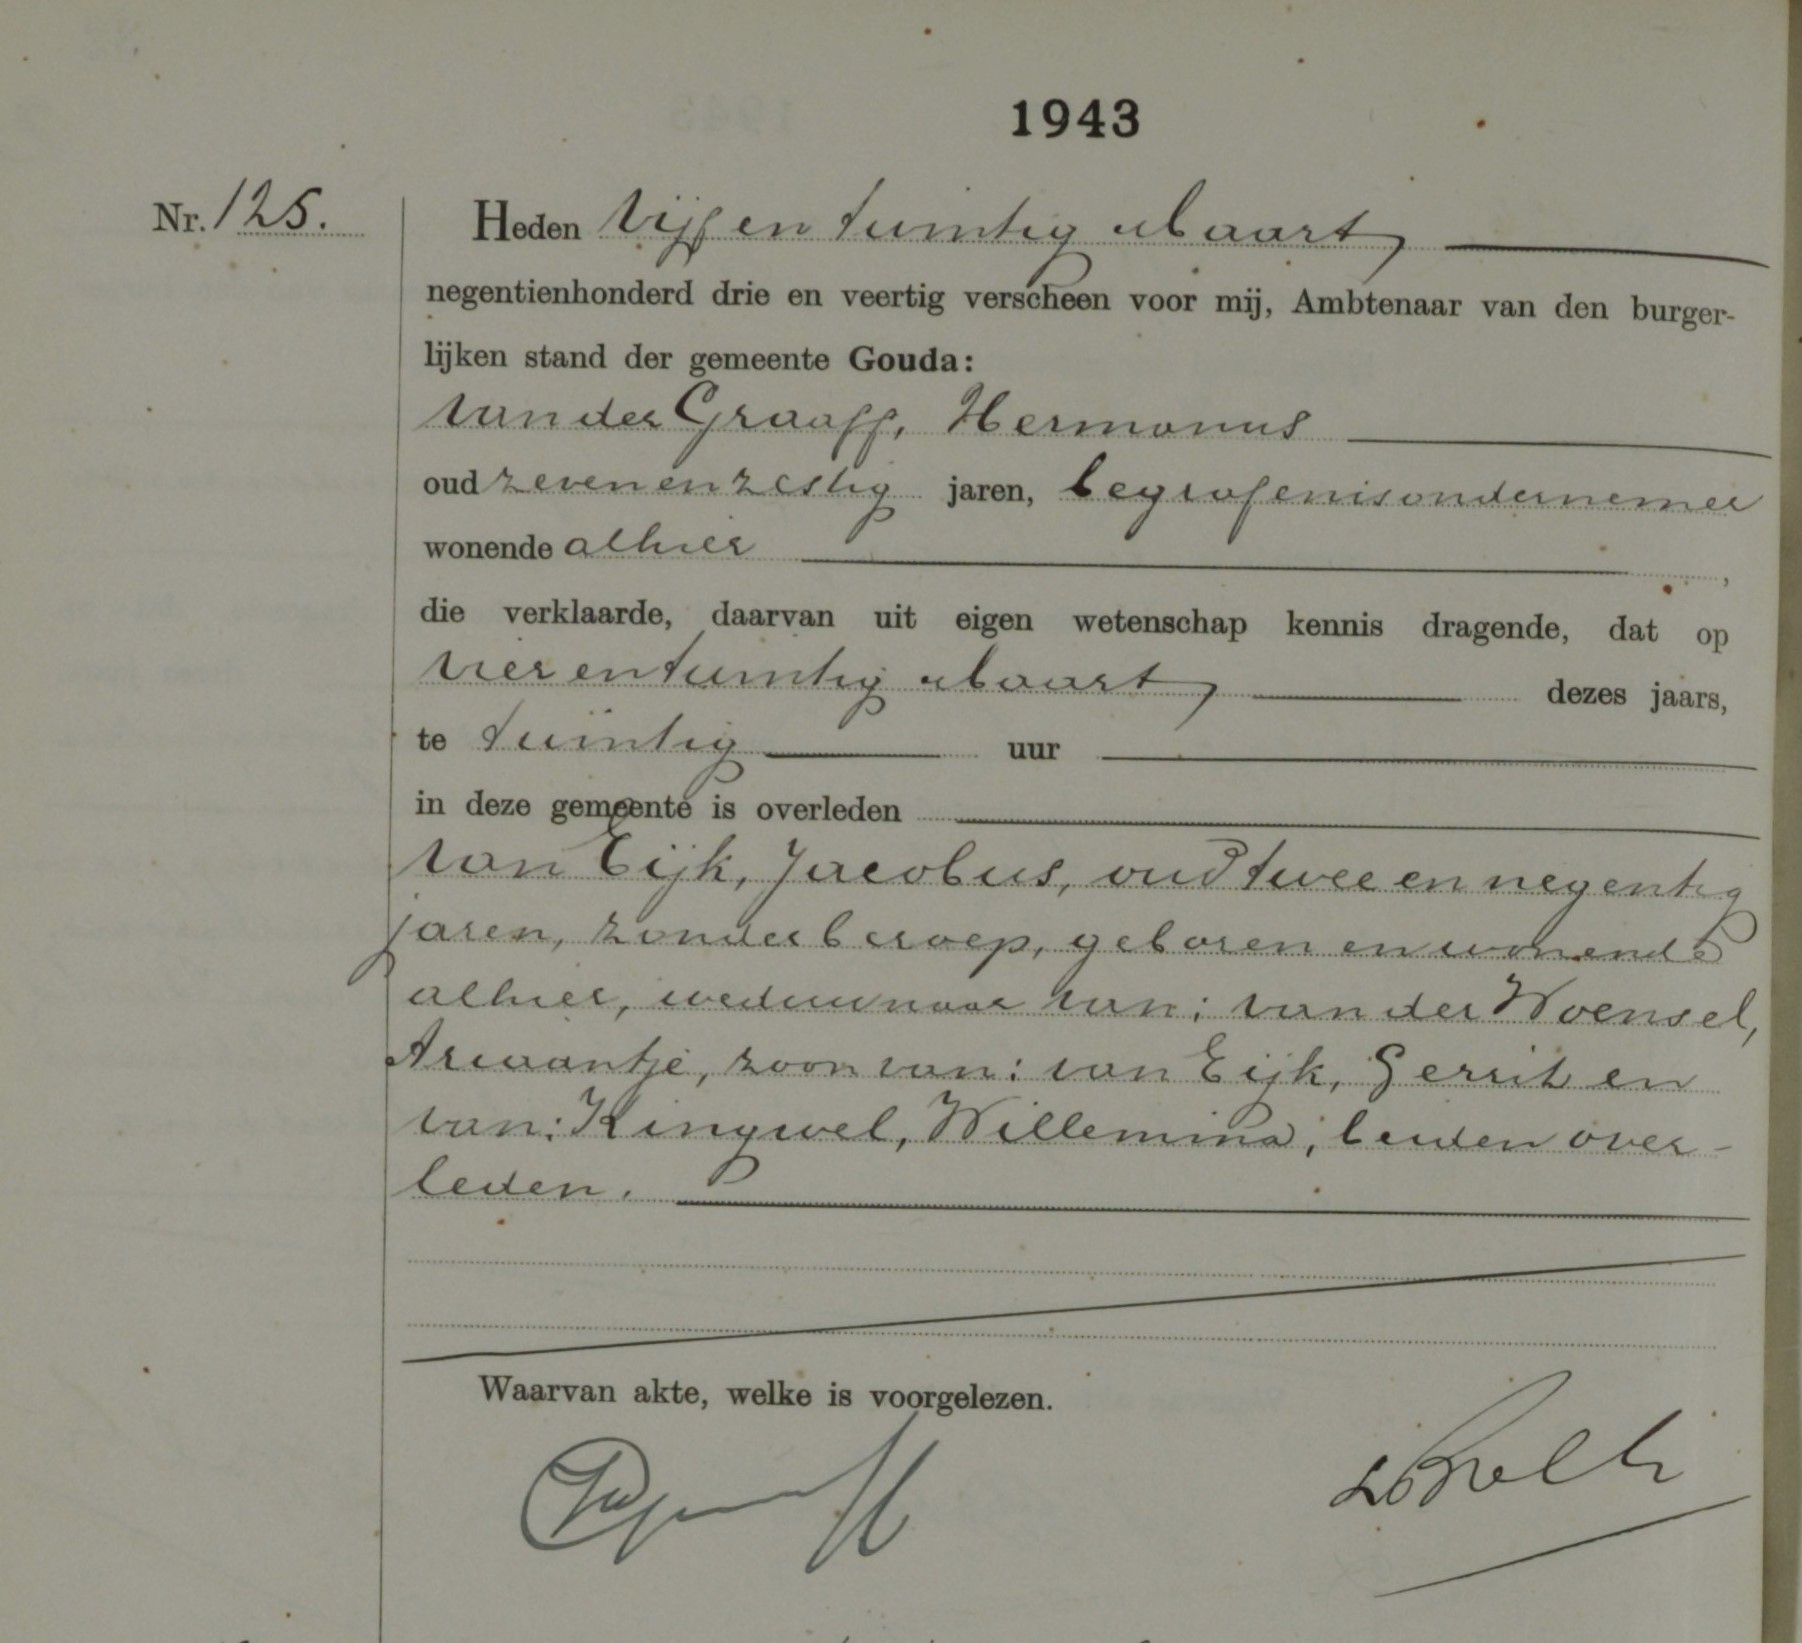 1943
Nr. 125.
Heden vijf en twintig Maart
negentienhonderd drie en veertig verscheen voor mij, Ambtenaar van den burger-
lijken stand der gemeente Gouda:
van der Graaff, Hermanus
oud zeven en zestig jaren, begrafenisondernemer
wonende alhier ,
die verklaarde, daarvan uit eigen wetenschap kennis dragende, dat op
vier en twintig Maart dezes jaars,
te twintig uur
in deze gemeente is overleden
van Eijk, Jacobus, oud twee en negentig
jaren, zonder beroep, geboren en wonende
alhier, weduwnaar van: van der Woensel,
Ariaantje, zoon van: van Eijk, Gerrit en
van: Kingwel, Willemina; beiden over-
leden.
Waarvan akte, welke is voorgelezen.